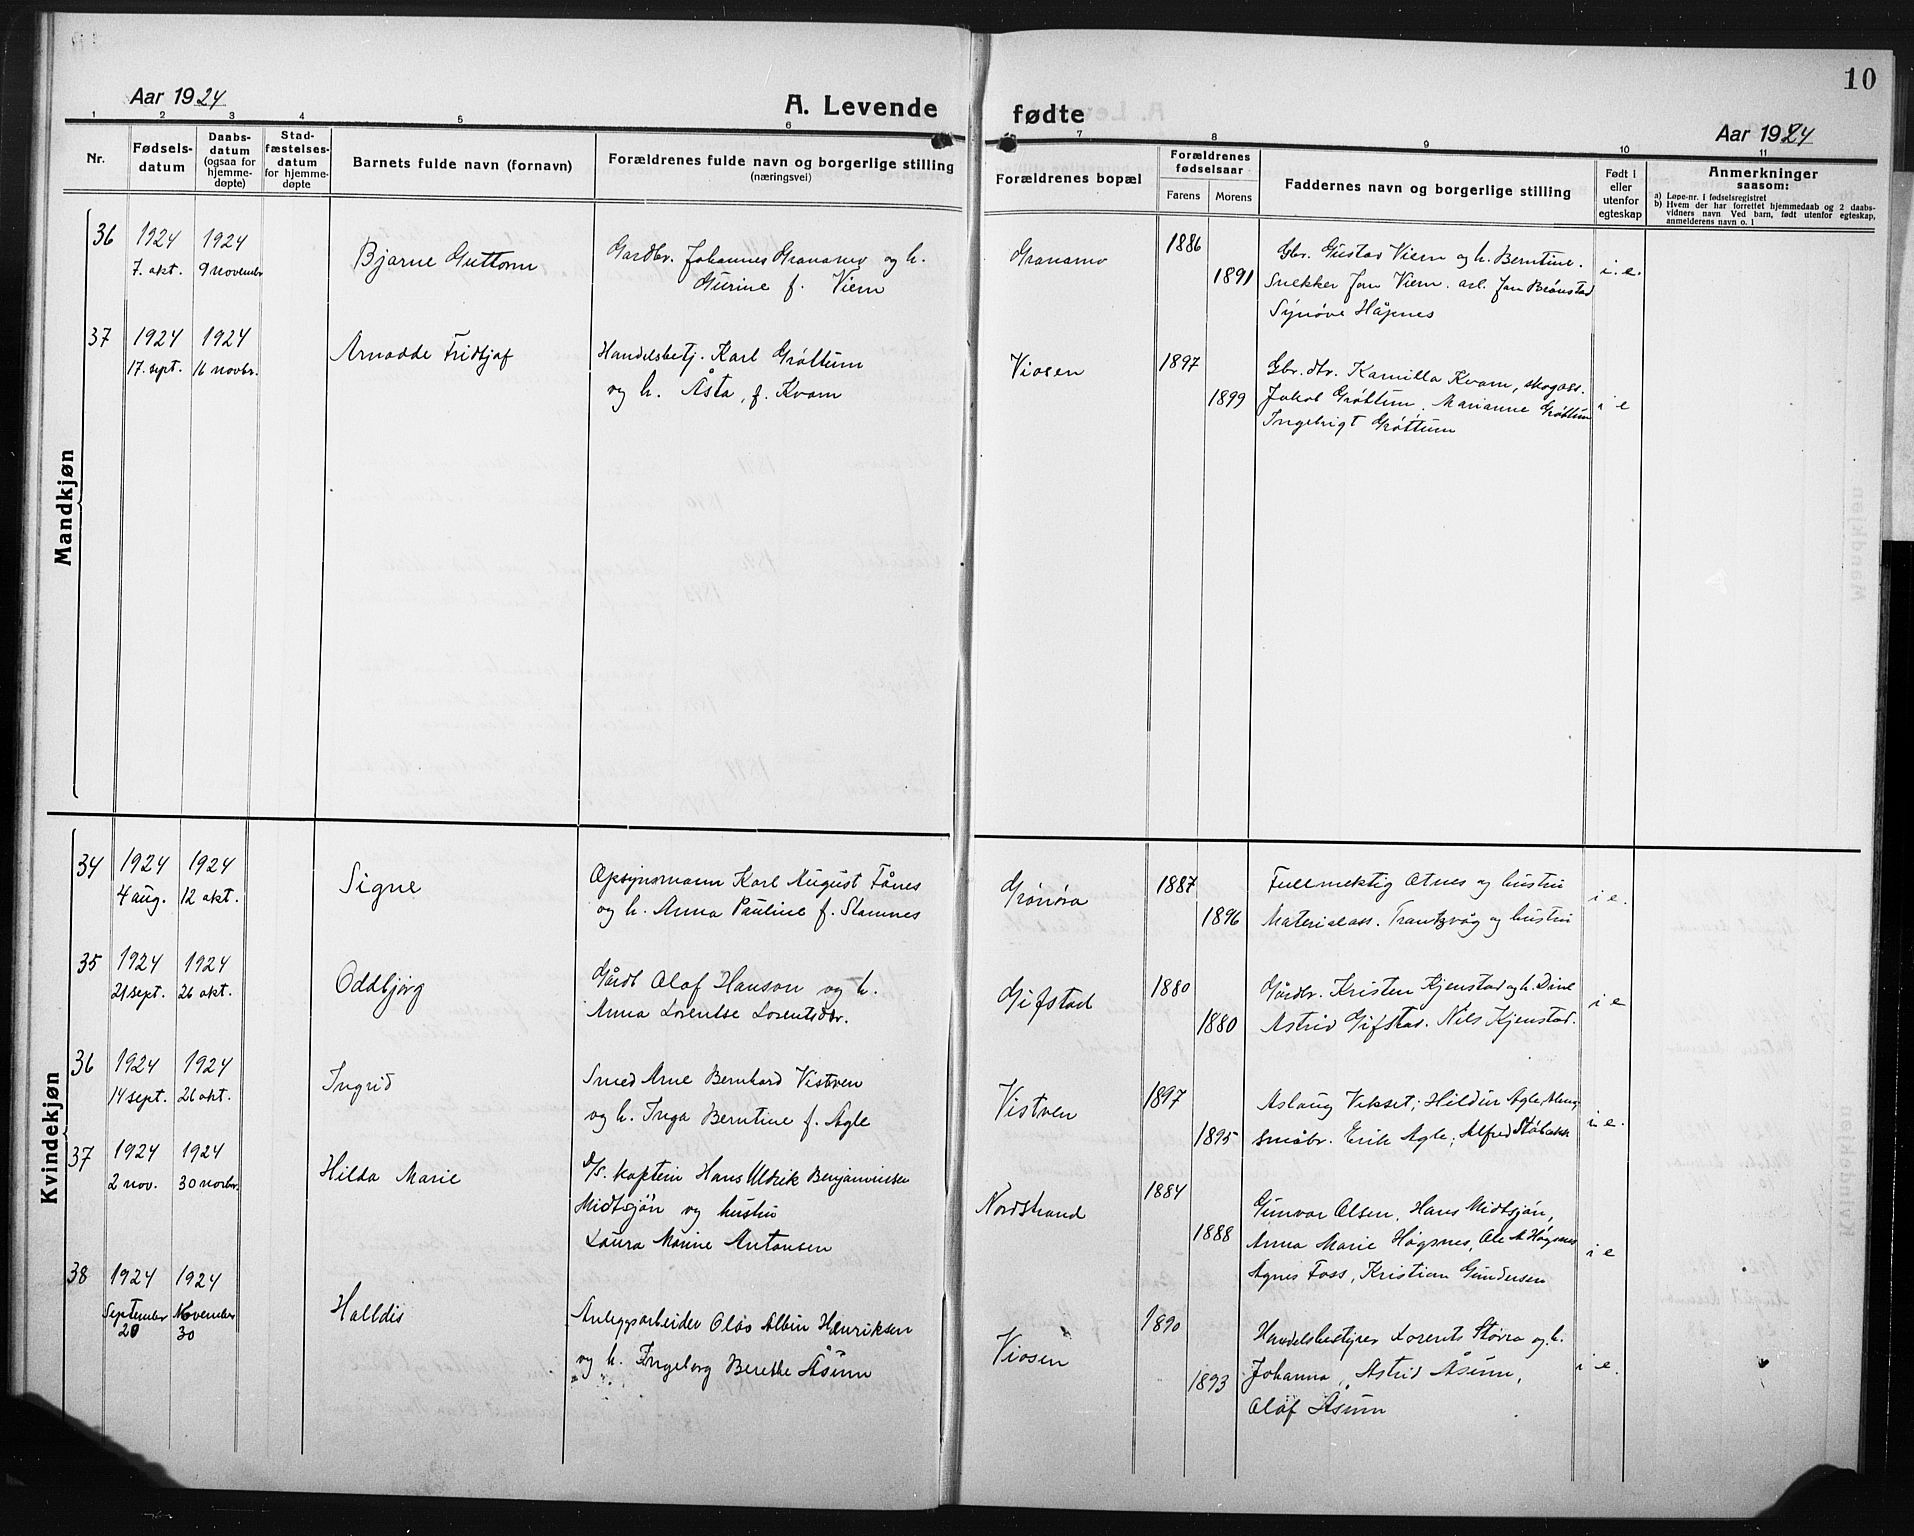 10
Aar 1924
A. Levende fødte
Aar 1924
1 2 3 4 5 6 7 8 9 10 11
Nr.
Fødsels-
datum
Daabs-
datum
(ogsaa for
hjemme-
døpte)
Stad-
fæstelses-
datum
for hjemme-
døpte
Barnets fulde navn (fornavn)
Forældrenes fulde navn og borgerlige stilling
(næringsvei)
Forældrenes bopæl
Forældrenes
fødselsaar
Farens Morens
Faddernes navn og borgerlige stilling
Født i
eller
utenfor
egteskap
Anmerkninger
saasom:
a) Løpe-nr. i fødselsregistret
b) Hvem der har forrettet hjemmedaab og 2 daabs-
vidners navn Ved barn, født utenfor egteskap,
anmelderens navn o. l
Mandkjøn
36
1924
7. okt.
1924
9 november
Bjarne Guttorm
Gardbr. Johannes Granamo og h.
Gurine f. Viem
Granamo
1886
1891
Gbr. Gustav Viem og h. Berntine.
Snekker Jon Viem. arb. Jon Brønstad
Synøve Håpnes
i. e.
37
1924
17. sept.
1924
16 novbr.
Arnodde Fridtjof
Handelsbetj. Karl Grøttum
og h. Åsta, f. Kvam
Viosen
1897
1899
Gbr. dtr. Kamilla Kvam, skogass.
Jakob Grøttum, Marianne Grøttum
Ingebrigt Grøttum
i e
Kvindekjøn
34
1924
4 aug.
1924
12 okt.
Signe
Opsynsmann Karl August Fånes
og h. Anna Pauline f. Stamnes
Grønøra
1887
1896
Fullmektig Otnes og hustru
Materialass. Trantzvåg og hustru
i e.
35
1924
21 sept.
1924
26 okt.
Oddbjørg
Gårdb Olaf Hanson og h.
Anna Lorentse Lorentsdtr.
Gifstad
1880
1880
Gårdbr. Kristen Kjenstad og h. Dine
Astrid Gifstad. Nils Kjenstad.
i e
36
1924
14 sept.
1924
26 okt.
Ingrid
Smed Arne Bernhard Vistven
og h. Inga Berntine f. Agle
Vistven
1897
1895
Aslaug Vekset; Hildur Agle,
småbr. Erik Agle; Alfred
i e.
37
1924
2 nov.
1924
30 novbr.
Hilda Marie
d/s. kaptein Hans Uldrik Benjaminsen
Midtsjön og hustru
Laura Marine Antonsen
Nordstrand
1884
1888
Gunvor Olsen, Hans Midtsjön,
Anna Marie Høgsnes, Ole A Høgsnes
Agnes Foss, Kristian Gundersen
i e
38
1924
September
20
1924
November
30
Halldis
Anleggsarbeider Olav Albin Henriksen
og h. Ingeborg Berethe Åsum
Viosen
1890
1893
Handelsbestyrer Lorents Störra og h.
Johanna, Astrid Åsum,
Olaf Åsum
i e.